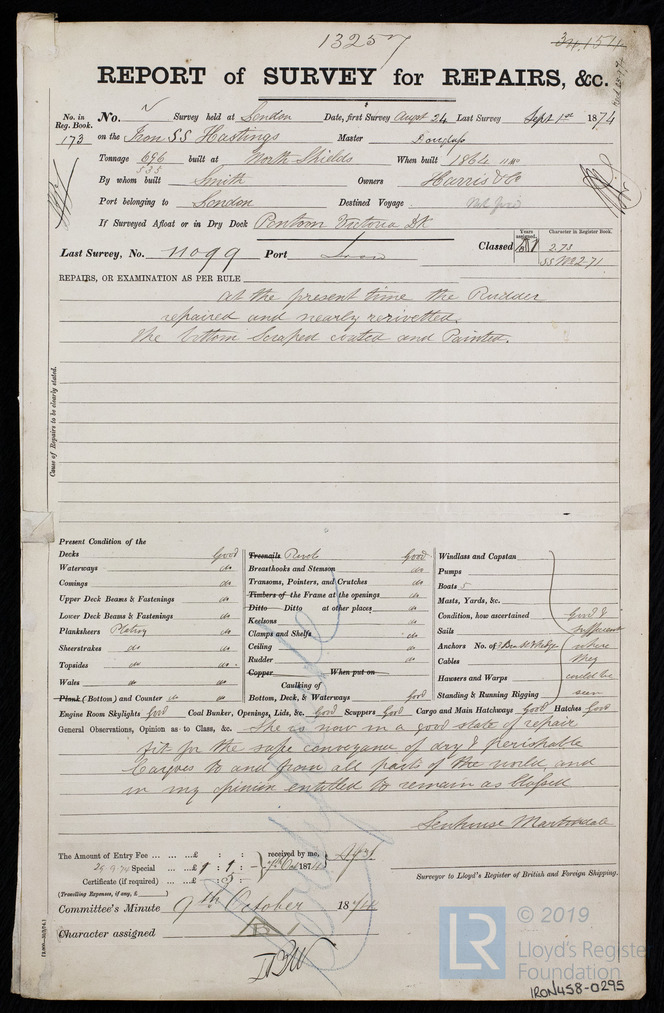 13257
34,154
REPORT of SURVEY for REPAIRS, &c.
No. in Reg. Book. No. Survey held at London Date, first Survey Augst 24 Last Survey Sept 1st 1874
173 on the Iron SS Hastings Master Douglass
Tonnage 696 built at North Shields When built 1864
535
By whom built Smith Owners Harris & Co
Port belonging to London Destined Voyage
If Surveyed Afloat or in Dry Dock Pontoon Victoria Dk
Last Survey, No. 11099 Port Lon Classed Years assigned Character in Register Book.
2.73
SS No 2-71
REPAIRS, OR EXAMINATION AS PER RULE
at the present time the Rudder
repaired and nearly rerivetted.
The bottom Scraped coated and Painted.
Cause of Repairs to be clearly stated.
Present Condition of the
Decks Good
Waterways do
Comings do
Upper Deck Beams & Fastenings do
Lower Deck Beams & Fastenings do
Planksheers Plating do
Sheerstrakes do do
Topsides do do
Wales do do
Plank (Bottom) and Counter do do
Treenails Rivets Good
Breasthooks and Stemson do
Transoms, Pointers, and Crutches do
Timbers of the Frame at the openings do
Ditto Ditto at other places do
Keelsons do
Clamps and Shelfs do
Ceiling do
Rudder do
Copper When put on
Caulking of
Bottom, Deck, & Waterways Good
Windlass and Capstan
Pumps
Boats 5
Masts, Yards, &c.
Condition, how ascertained Good &
Sails sufficient
Anchors No. of 3 Bow St & Kedge where
Cables they
Hawsers and Warps could be
Standing & Running Rigging seen
Engine Room Skylights Good Coal Bunker, Openings, Lids, &c. Good Scuppers Good Cargo and Main Hatchways Good Hatches Good
General Observations, Opinion as to Class, &c. She is now in a good state of repair
fit for the safe conveyance of dry & perishable
Cargoes to and from all parts of the world and
in my opinion entitled to remain as Classed
The Amount of Entry Fee £ : : received by me,
25.9.74 Special £1 : 1 : 7th Oct 1874
Certificate (if required) £ : 5 :
(Travelling Expenses, if any, £
Surveyor to Lloyd's Register of British and Foreign Shipping.
Committee's Minute 9th October 1874
Character assigned
LR © 2019
Lloyd's Register
Foundation
IRON458-0295